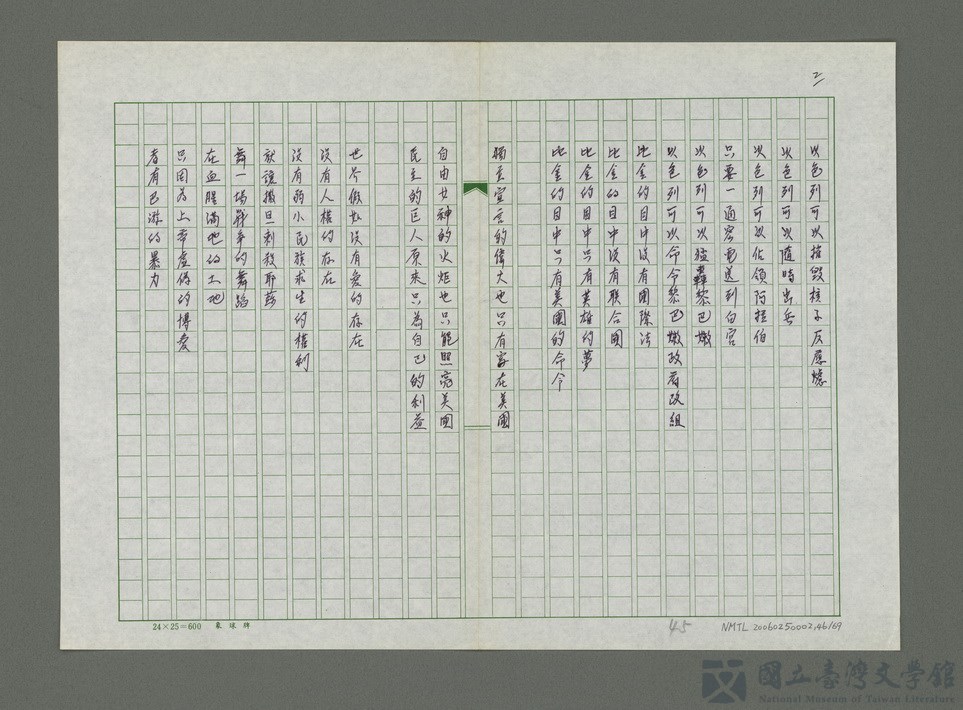 2
以色列可以摧毀核子反應爐
以色列可以隨時出兵
以色列可以佔領阿拉伯
只要一通密電送到白宮
以色列可以猛轟黎巴嫩
以色列可以命令黎巴嫩政府改組
比金的目中沒有國際法
比金的目中沒有聯合國
比金的目中只有英雄的夢
比金的目中只有美國的命令
獨立宣言的偉大也只有寫在美國
自由女神的火炬也只能照亮美國
民主的巨人原來只為自己的利益
世界假如沒有愛的存在
沒有人權的存在
沒有弱小民族求生的權利
就讓撒旦刺殺耶穌
舞一場戰爭的舞蹈
在血腥滿地的土地
只因為上帝虛偽的博愛
看有色彩的暴力
24×25=600 象球牌
45
NMTL 20060250002,46/69
國立臺灣文學館
National Museum of Taiwan Literature